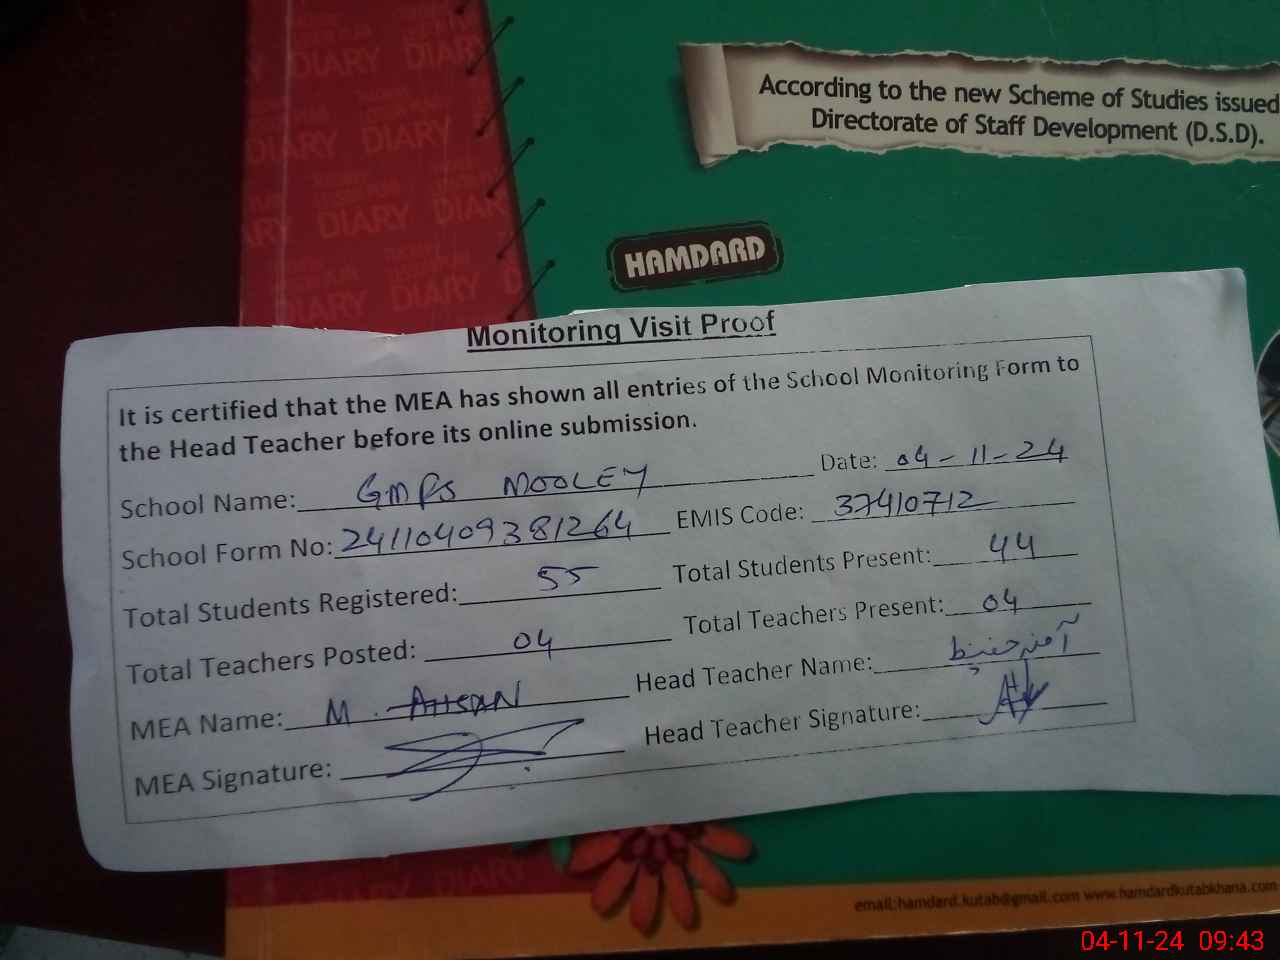 According to the new Scheme of Studies issued
Directorate of Staff Development (D.S.D).
DIARY DIARY
DIARY DIARY
DIARY
DIARY DIARY
HAMDARD
Monitoring Visit Proof
It is certified that the MEA has shown all entries of the School Monitoring Form to
the Head Teacher before its online submission.
School Name: GMPS MOOLEY Date: 04-11-24
School Form No: 24110409381264 EMIS Code: 37410712
Total Students Registered: 55 Total Students Present: 44
Total Teachers Posted: 04 Total Teachers Present: 04
MEA Name: M. AHSAN Head Teacher Name: آمنہ حفیظ
MEA Signature: Head Teacher Signature:
DIARY
email:hamdard.kutab@gmail.com www.hamdardkutabkhana.com
04-11-24 09:43